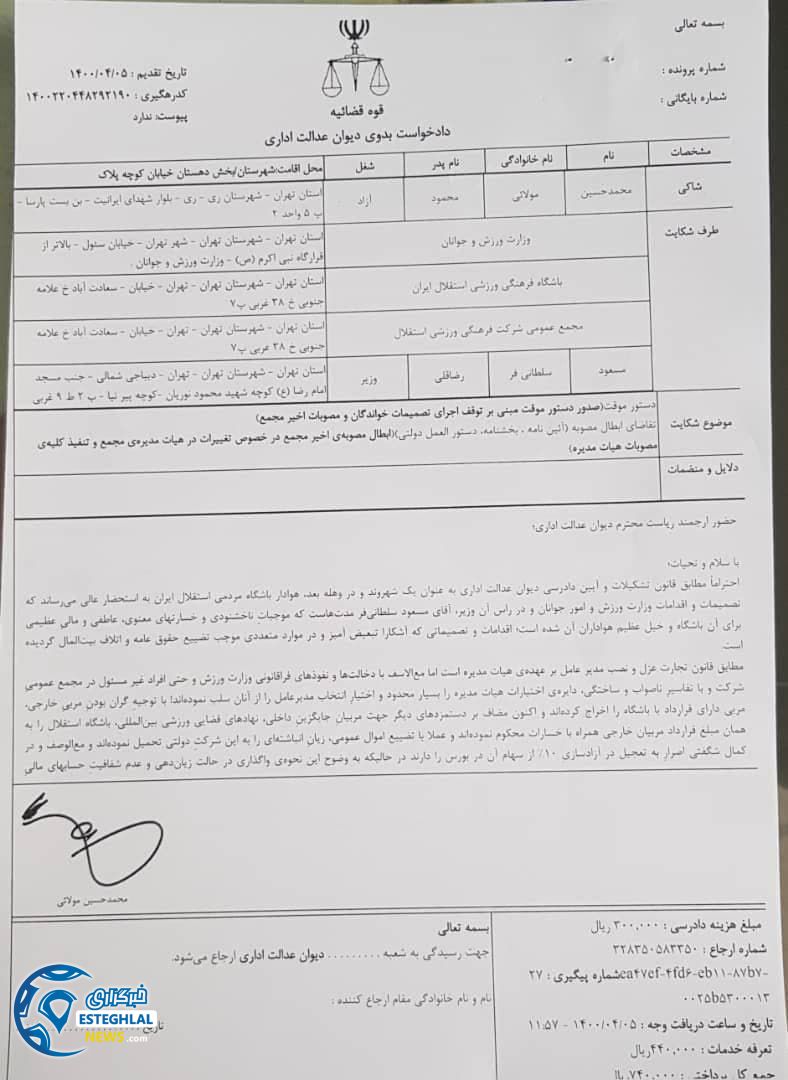 بسمه تعالی
شماره پرونده :
شماره بایگانی :
قوه قضائیه
دادخواست بدوی دیوان عدالت اداری
تاریخ تقدیم : ۱۴۰۰/۰۴/۰۵
کدرهگیری : ۱۴۰۰۲۲۰۴۴۸۲۹۲۱۹۰
پیوست: ندارد
مشخصات نام نام خانوادگی نام پدر شغل محل اقامت:شهرستان/بخش دهستان خیابان کوچه پلاک
شاکی محمدحسین مولائی محمود آزاد استان تهران - شهرستان ری - ری - بلوار شهدای ایرانیت - بن بست پارسا -
پ ۵ واحد ۲
طرف شکایت وزارت ورزش و جوانان استان تهران - شهرستان تهران - شهر تهران - خیابان سئول - بالاتر از
قرارگاه نبی اکرم (ص) - وزارت ورزش و جوانان .
باشگاه فرهنگی ورزشی استقلال ایران استان تهران - شهرستان تهران - تهران - خیابان - سعادت آباد خ علامه
جنوبی خ ۳۸ غربی پ۷
مجمع عمومی شرکت فرهنگی ورزشی استقلال استان تهران - شهرستان تهران - تهران - خیابان - سعادت آباد خ علامه
جنوبی خ ۳۸ غربی پ۷
مسعود سلطانی فر رضاقلی وزیر استان تهران - شهرستان تهران - تهران - دیباجی شمالی - جنب مسجد
امام رضا (ع) کوچه شهید محمود نوریان -کوچه پیر نیا - پ ۲ ط ۹ غربی
موضوع شکایت دستور موقت(صدور دستور موقت مبنی بر توقف اجرای تصمیمات خواندگان و مصوبات اخیر مجمع)
تقاضای ابطال مصوبه (آئین نامه ، بخشنامه، دستور العمل دولتی)(ابطال مصوبه‌ی اخیر مجمع در خصوص تغییرات در هیات مدیره‌ی مجمع و تنفیذ کلیه‌ی
مصوبات هیات مدیره)
دلایل و منضمات
حضور ارجمند ریاست محترم دیوان عدالت اداری؛
با سلام و تحیات؛
احتراماً مطابق قانون تشکیلات و آیین دادرسی دیوان عدالت اداری به عنوان یک شهروند و در وهله بعد، هوادار باشگاه مردمی استقلال ایران به استحضار عالی می‌رساند که
تصمیمات و اقدامات وزارت ورزش و امور جوانان و در راس آن وزیر، آقای مسعود سلطانی‌فر مدت‌هاست که موجبات ناخشنودی و خسارتهای معنوی، عاطفی و مالی عظیمی
برای آن باشگاه و خیل عظیم هواداران آن شده است؛ اقدامات و تصمیماتی که آشکارا تبعیض آمیز و در موارد متعددی موجب تضییع حقوق عامه و اتلاف بیت‌المال گردیده
است.
مطابق قانون تجارت عزل و نصب مدیر عامل بر عهده‌ی هیات مدیره است اما مع‌الاسف با دخالت‌ها و نفوذهای فراقانونی وزارت ورزش و حتی افراد غیر مسئول در مجمع عمومی
شرکت و با تفاسیر ناصواب و ساختگی، دایره‌ی اختیارات هیات مدیره را بسیار محدود و اختیار انتخاب مدیرعامل را از آنان سلب نموده‌اند! با توجیه گران بودن مربی خارجی،
مربی دارای قرارداد با باشگاه را اخراج کرده‌اند و اکنون مضاف بر دستمزدهای دیگر جهت مربیان جایگزین داخلی، نهادهای قضایی ورزشی بین‌المللی، باشگاه استقلال را به
همان مبلغ قرارداد مربیان خارجی همراه با خسارات محکوم نموده‌اند و عملا با تضییع اموال عمومی، زیان انباشته‌ای را به این شرکت دولتی تحمیل نموده‌اند و مع‌الوصف و در
کمال شگفتی اصرار به تعجیل در آزادسازی ۱۰٪ از سهام آن در بورس را دارند در حالیکه به وضوح این نحوه‌ی واگذاری در حالت زیان‌دهی و عدم شفافیت حسابهای مالی
محمدحسین مولائی
مبلغ هزینه دادرسی : ۳۰۰,۰۰۰ ریال
شماره ارجاع : ۳۲۸۳۵۰۵۸۳۳۵۰
شماره پیگیری : ۲۷ea۴۷ef-۴fd۶-eb۱۱-۸۷b۷-
۰۰۲۵b۵۳۰۰۰۱۳
تاریخ و ساعت دریافت وجه : ۱۴۰۰/۰۴/۰۵ - ۱۱:۵۷
تعرفه خدمات : ۴۴۰,۰۰۰ریال
جمع کل پرداختی : ۷۴۰,۰۰۰ ریال
بسمه تعالی
جهت رسیدگی به شعبه . . . . . . . . . دیوان عدالت اداری ارجاع می‌شود.
نام و نام خانوادگی مقام ارجاع کننده :
تاریخ
خبرگزاری
ESTEGHLAL
NEWS.com